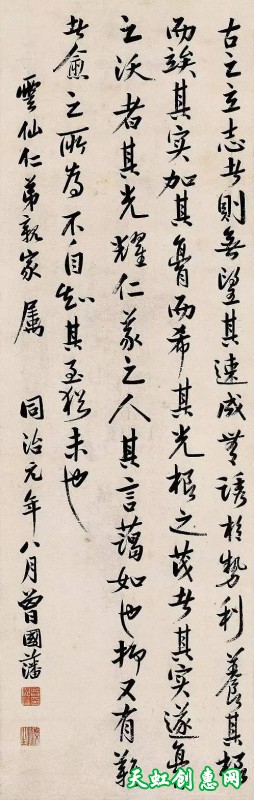 古之立志者則無望其速成無誘於勢利養其根
而竢其实加其膏而希其光根之茂者其实遂膏
之沃者其光耀仁義之人其言藹如也抑又有難
者愈之所為不自知其至猶未也
雲仙仁弟親家屬 同治元年八月曾國藩
天虹创惠网